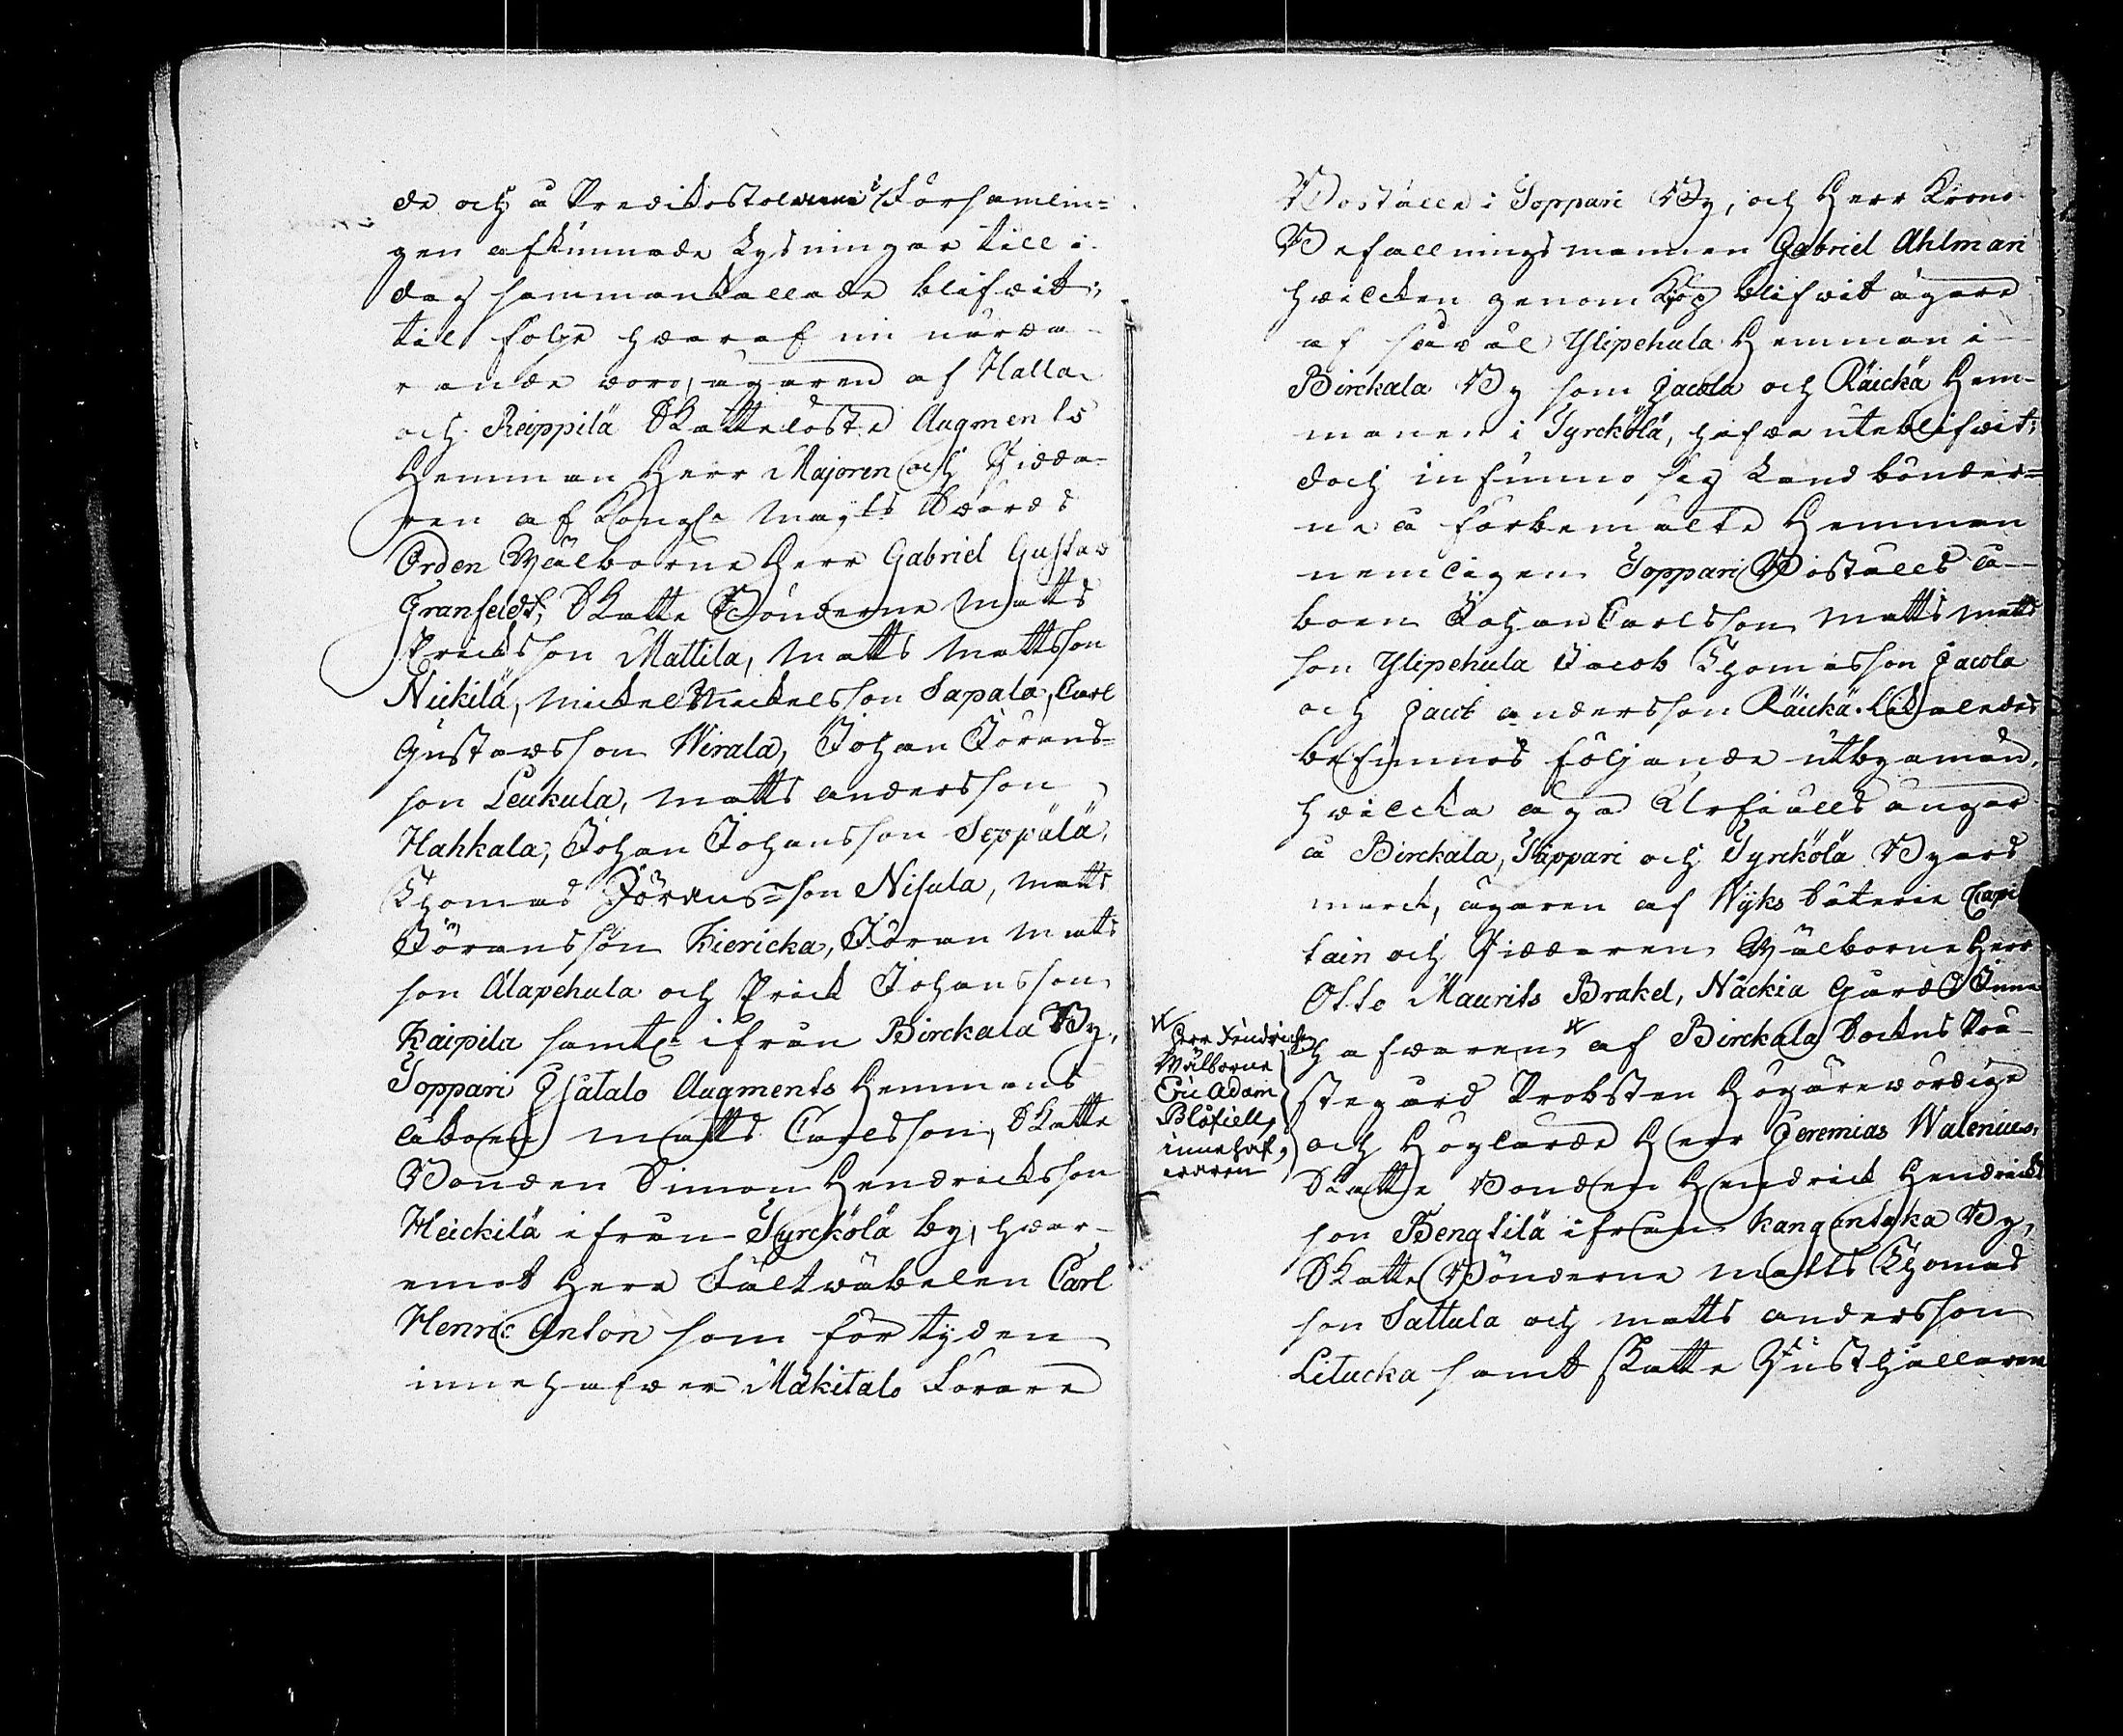 de och å Predikostolarne i Församlin=
gen afkunnade Lysningar till i
dag sammankallade blifvit;
til följe hvaraf nu närva-
rande voro, ägaren af Halla
och Reippilä Skattelöste Augments
Hemman Herr Majoren och Ridda=
ren af Kongl. Mayts Svärds
Orden Wälborne Herr Gabriel Gustav
Granfeldt; Skatte Bönderne Matts
Ericksson Mattila, Matts Mattsson
Nickilä, Mickel Mickelsson Sapala, Carl
Gustavsson Wirala, Johan Jörans=
son Leukula, Matts Andersson
Hahkala, Johan Johansson Seppälä,
Thomas Jörans=son Nisula, Matts
Jöransson Kiericka, Jöran Matts
son Alapehula och Erick Johansson
Kaipila samt ifrån Birckala By,
Toppari Ylätalo Augments Hemmans
åboen Matts Carlsson, Skatte
Bonden Simon Hendricksson
Heickilä ifrån Tyrckölä by, hvar-
emot Herr Fältwäbelen Carl
Henric Anton som för tyden
innehafver Mäkitalo Förare
Boställe i Toppari By, och Herr Krono
Befallningsmannen Gabriel Ahlman
hvilcken genom Kjöp blifvit ägare
af såväl Ylipehula Hemman i
Birckala By som Jacola och Räickä Hem-
manen i Tyrckölä, hafva uteblifvit;
doch infunno sig Landbönder=
ne å förbemälte Hemman
nemligen Toppari Boställs å-
boen Johan Carlsson, Matts Matts
son Ylipehula Jacob Thomasson Jacola
och Jacob Andersson Räickä. Likaledes
befunnos följande utbyamän,
hvilcka äga Urfjälls ängar
å Birckala, Toppari och Tyrckölä Byars
marck, ägaren af Wyks Säterie Capi
tain och Riddaren Wälborne Herr
Otto Maurits Brakel, Näckia Gårds Inne
hafvaren * af Birckala Sockns Prä-
stegård Probsten Högärevördige
och Höglärde Herr Jeremias Walenius,
Skatte Bonden Hendrick Hendricks
son Bengtilä ifrån Kangantaka By,
Skatte Bönderne Matts Thomas
son Sattula och Matts Andersson
Litucka samt Skatte Rusthållaren
* Herr Fendricken
Wälborne
Eric Adam
Blåfield,
innehaf,
varen